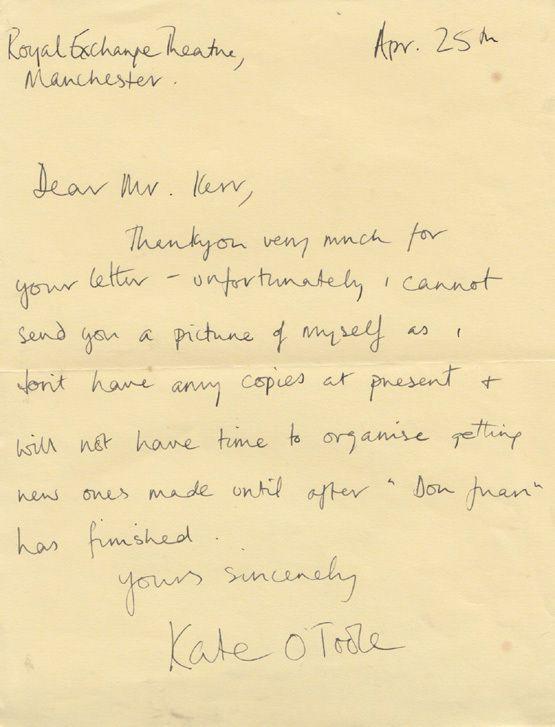 Royal Exchange Theatre,
Manchester.
Apr. 25th
Dear Mr. Kerr,
Thankyou very much for
your letter - unfortunately I cannot
send you a picture of myself as I
don't have any copies at present &
will not have time to organise getting
new ones made until after "Don Juan"
has finished.
yours sincerely
Kate O'Toole